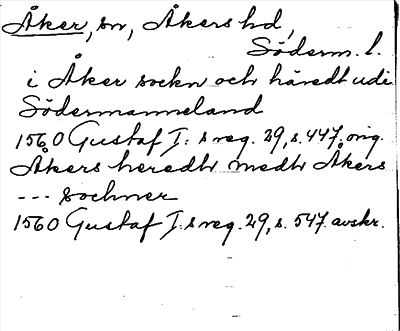 Åker, sn, Åkers hd,
Söderm. l.
i Åker sockn och häredt udi
Södermanneland
1560 Gustaf I:s reg. 29, s. 447. orig.
Åkers heredt medt Åkers
--- sochner
1560 Gustaf I:s reg. 29, s. 547. avskr.